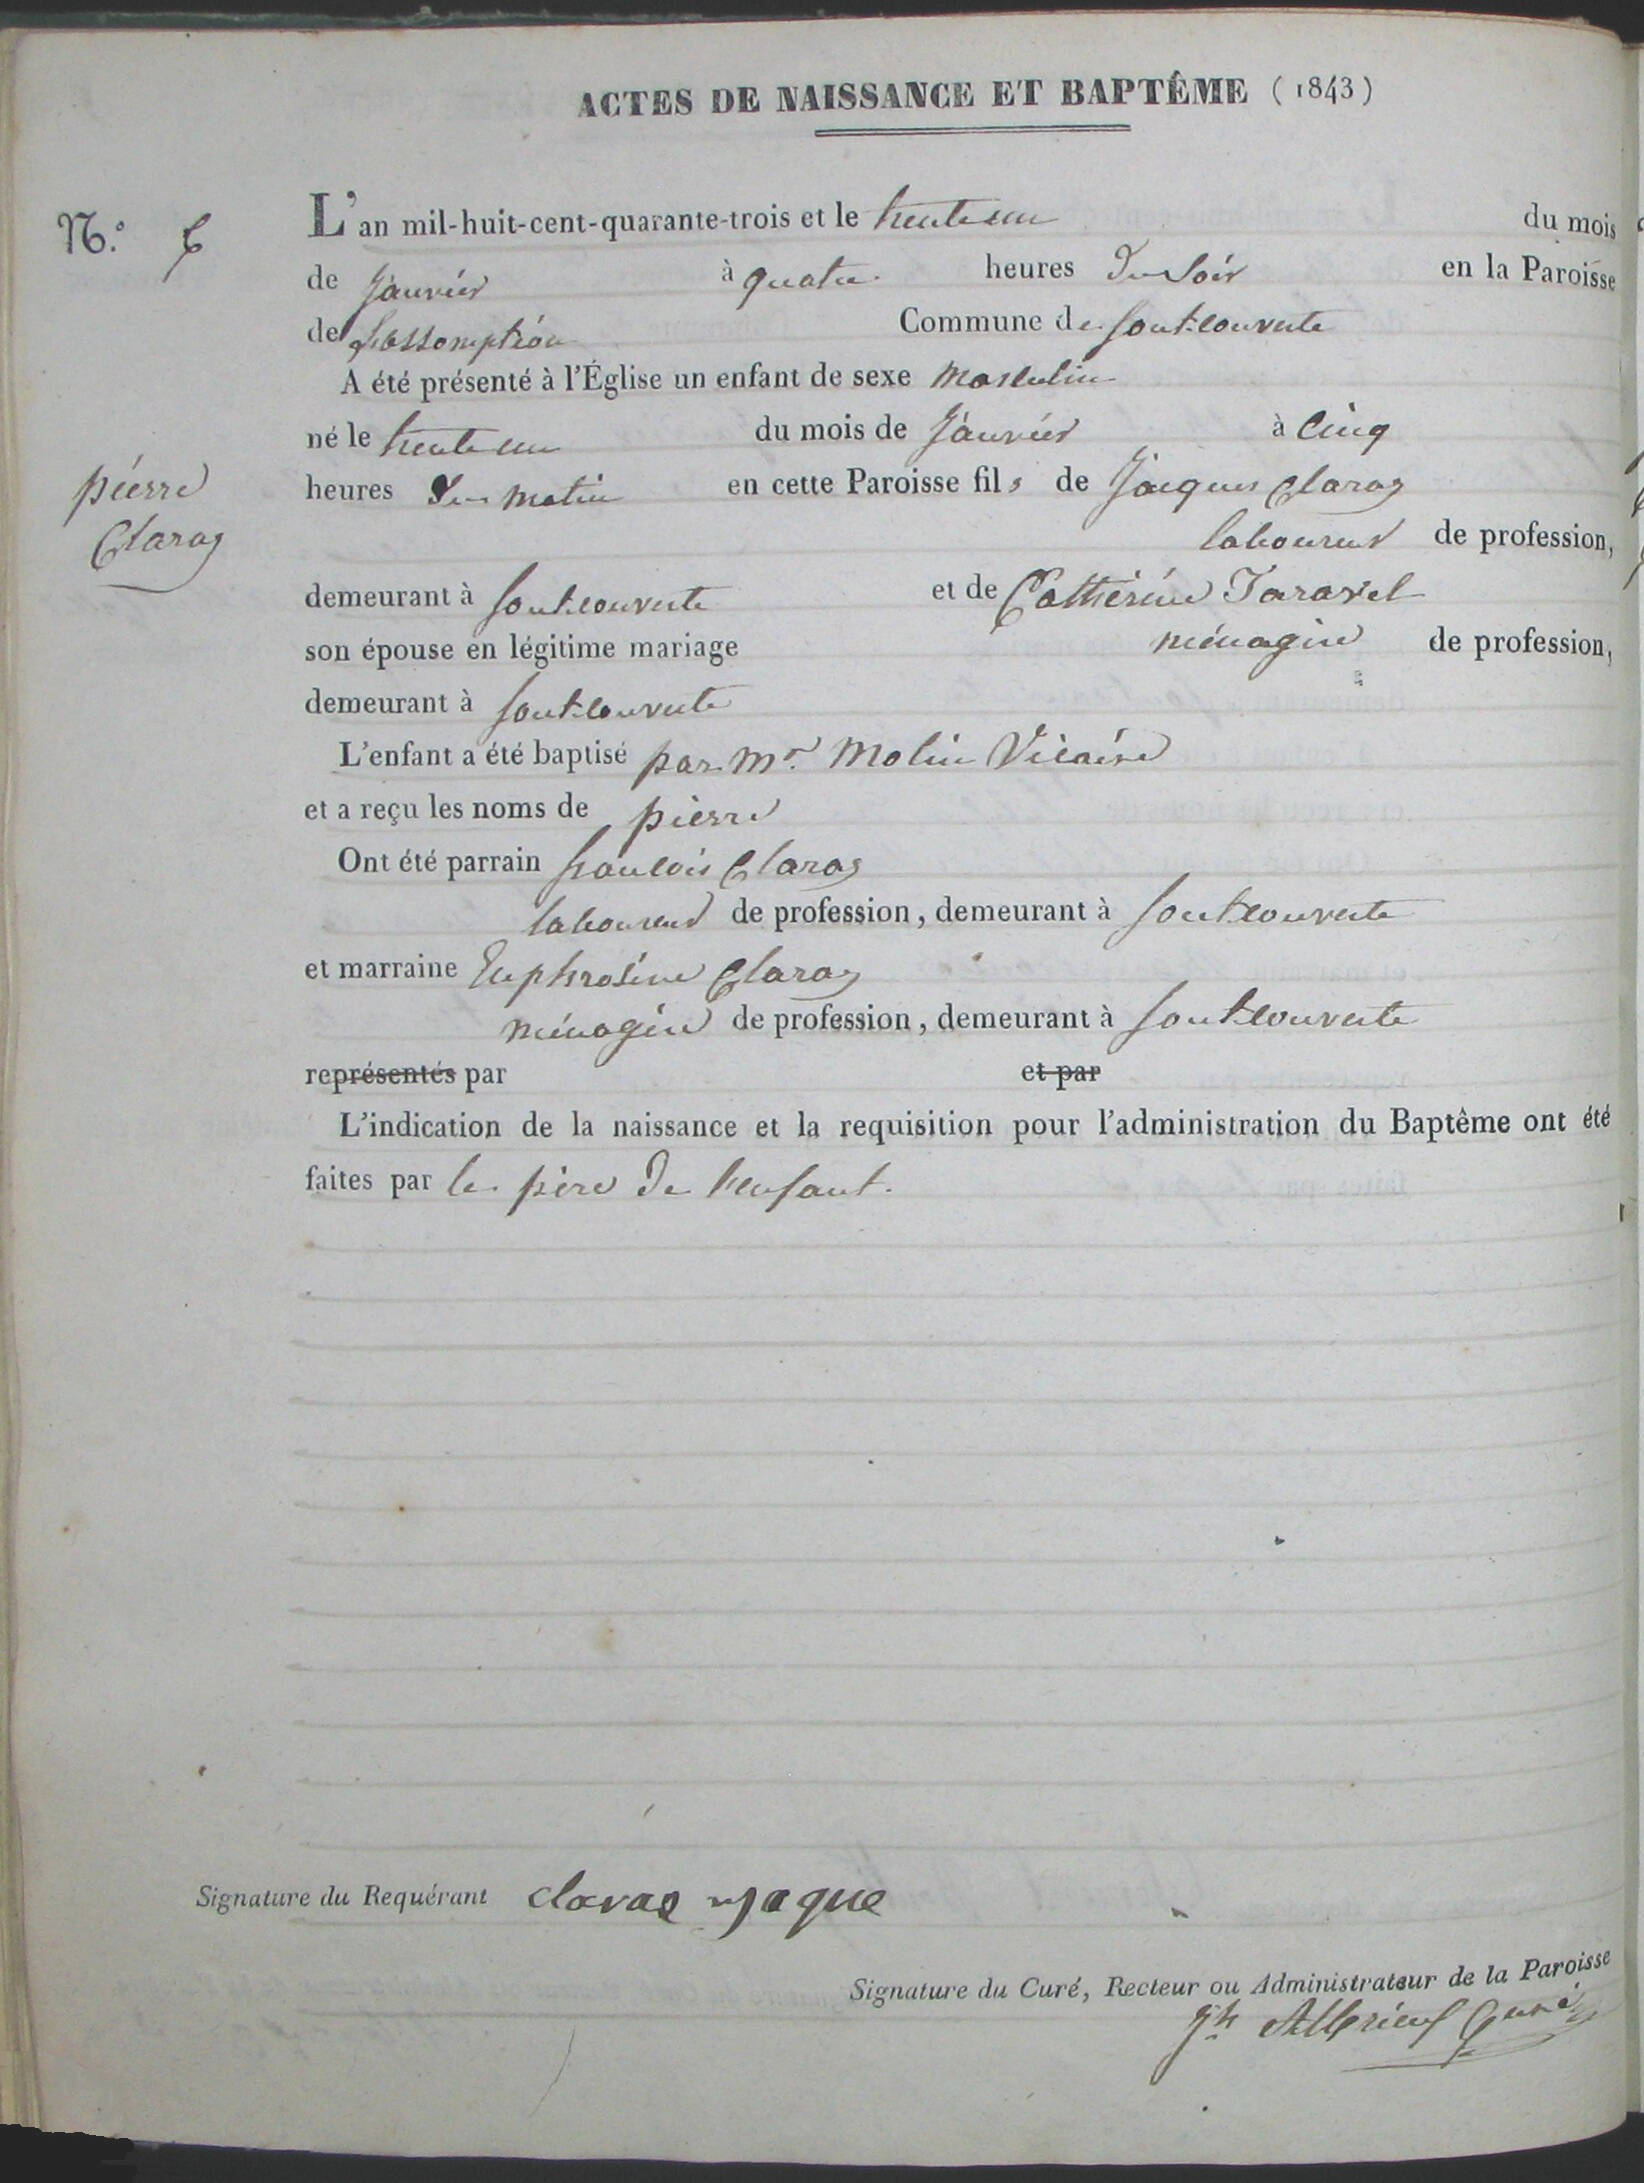 ACTES DE NAISSANCE ET BAPTÊME (1843)
N.° 6
L'an mil-huit-cent-quarante-trois et le trente un du mois
de janvier à quatre heures Du Soir en la Paroisse
de l'assomption Commune de fontcouverte
A été présenté à l'Église un enfant de sexe masculin
né le trente un du mois de janvier à cinq
heures Du matin en cette Paroisse fils de Jacques Claraz
pierre
Claraz
laboureur de profession,
demeurant à fontcouverte et de Catherine Taravel
son épouse en légitime mariage ménagère de profession,
demeurant à fontcouverte
L'enfant a été baptisé par mr. Molin Vicaire
et a reçu les noms de pierre
Ont été parrain francois Claraz
laboureur de profession, demeurant à fontcouverte
et marraine Euphrosine Claraz
ménagère de profession, demeurant à fontcouverte
représentés par et par
L'indication de la naissance et la requisition pour l'administration du Baptême ont été
faites par le père De l'enfant.
Signature du Requérant claraz jaque
Signature du Curé, Recteur ou Administrateur de la Paroisse
jh Albrieux Curé